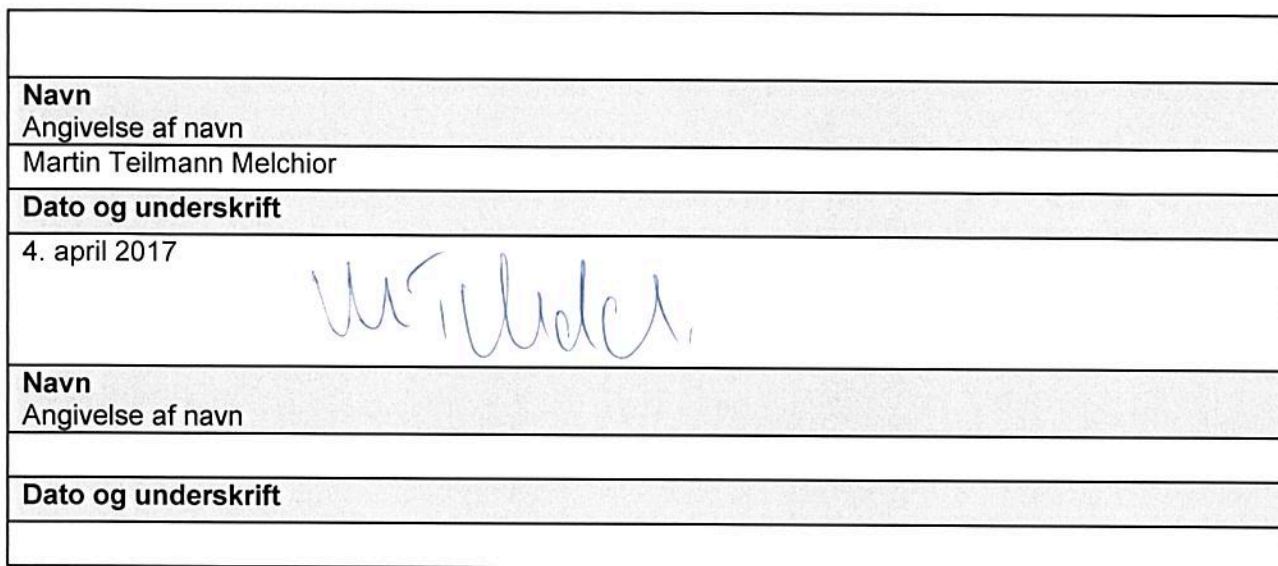 Navn
Angivelse af navn
Martin Teilmann Melchior
Dato og underskrift
4. april 2017
Navn
Angivelse af navn
Dato og underskrift